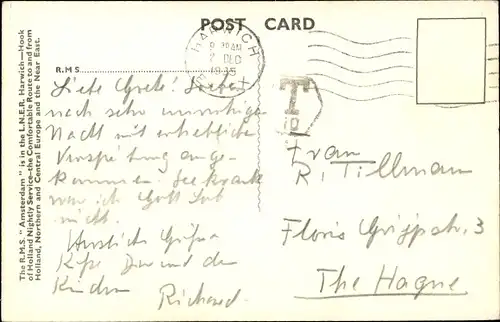 POST CARD
HARWICH
9 30 AM
DEC
1935
The R.M.S. "Amsterdam" is in the L.N.E.R. Harwich—Hook
of Holland Nightly Service—the Comfortable Route to and from
Holland, Northern and Central Europe and the Near East.
R.M.S.
Liebe Grete! Soeben
nach sehr unruhiger
Nacht mit erheblicher
Verspätung ange-
kommen. Seekrank
war ich Gott Lob
nicht.
Herzliche Grüße
Küsse Dir und den
Kindern Richard.
T
10
Frau
R. Tillmann
Floris Grijpstr. 3
The Hague